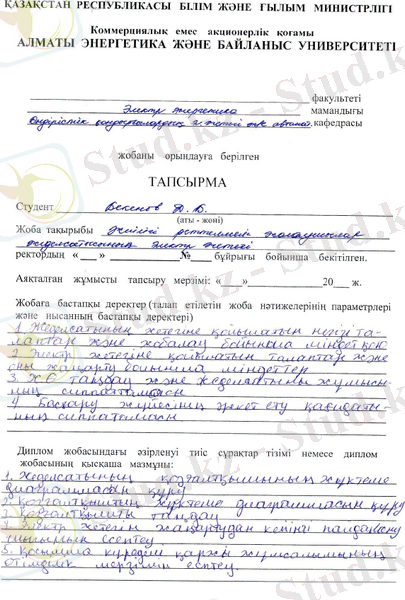 ҚАЗАҚСТАН РЕСПУБЛИКАСЫ БІЛІМ ЖӘНЕ ҒЫЛЫМ МИНИСТРЛІГІ
Коммерциялық емес акционерлік қоғамы
АЛМАТЫ ЭНЕРГЕТИКА ЖӘНЕ БАЙЛАНЫС УНИВЕРСИТЕТІ
факультеті
Электр энергетика мамандығы
кафедрасы
жобаны орындауға берілген
ТАПСЫРМА
Студент Бекенов Д.Б.
(аты - жөні)
Жоба тақырыбы Жиілігі реттелмелі жолаушылар
жеделсатысының электр жетегі
ректордың «___» ________ №____ бұйрығы бойынша бекітілген.
Аяқталған жұмысты тапсыру мерзімі: «___»________20___ ж.
Жобаға бастапқы деректер (талап етілетін жоба нәтижелерінің параметрлері
және нысанның бастапқы деректері)
1. Жеделсатының жетегіне қойылатын негізгі та-
лаптар және жобалау бойынша міндет қою
2. Электр жетегіне қойылатын талаптар және
оны жаңарту бойынша міндеттер
3. таңдау және жеделсатының жұмысы-
ның сипаттамасы
4. Басқару жүйесінің әрекет ету қағидаты-
ның сипаттамасы
Диплом жобасындағы әзірленуі тиіс сұрақтар тізімі немесе диплом
жобасының қысқаша мазмұны:
1. Жеделсатының қозғалтқышының жүктеме
диаграммасын құру
2. Қозғалтқыштың жүктеме диаграммасын құру
3. Қозғалтқышты таңдау
4. Электр жетегін жаңартудан кейінгі пайдалану
шығынын есептеу
5. Қосымша күрделі қаржы жұмсалымының
өтімділік мерзімін есептеу.
Stud.kz - Stud.kz